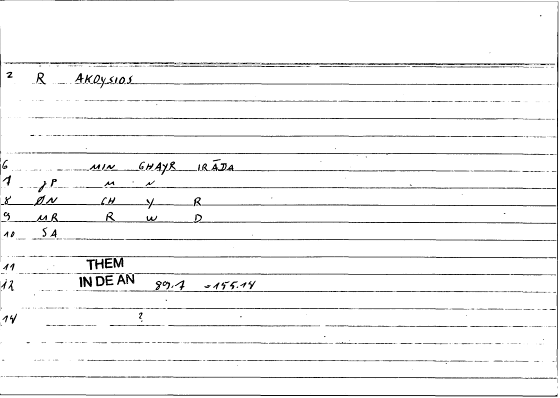 2 R AKOYSIOS
6 MIN GHAYR IRĀDA
7 JP M N
8 ØN GH Y R
9 MR R W D
10 SA
11 THEM
12 IN DE AN 89.7 =155.14
14 ?